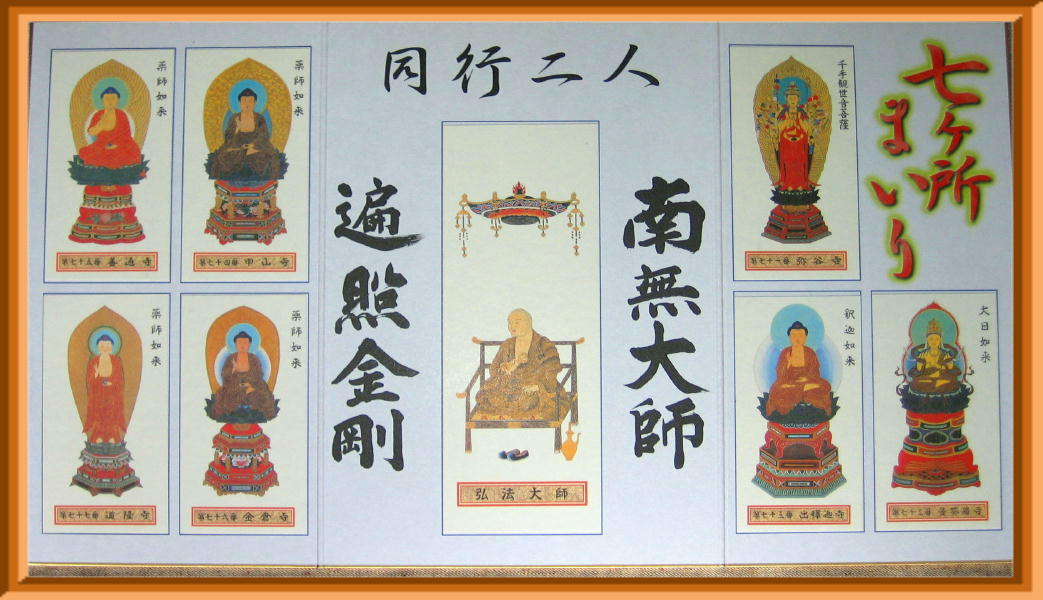 七ヶ所
まいり
千手観世音菩薩
第七十一番 弥谷寺
大日如来
第七十二番 曼荼羅寺
釈迦如来
第七十三番 出釋迦寺
同行二人
南無大師
遍照金剛
弘法大師
薬師如来
第七十四番 甲山寺
薬師如来
第七十五番 善通寺
薬師如来
第七十六番 金倉寺
薬師如来
第七十七番 道隆寺